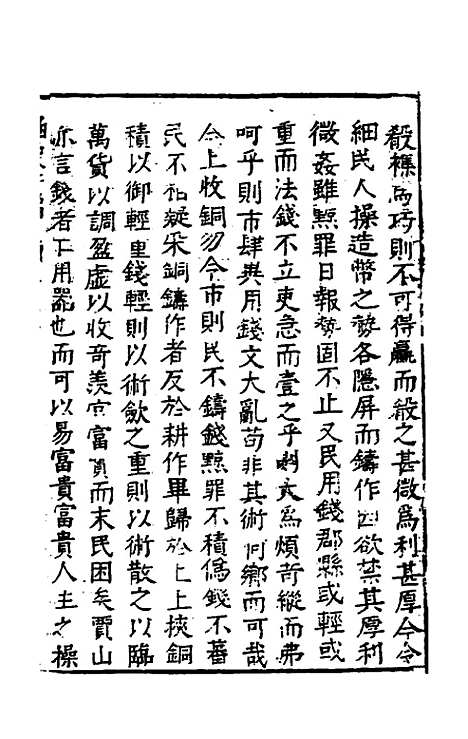 殽襍爲巧則不可得贏而殽之甚微爲利甚厚今令
細民人操造幣之勢各隱屏而鑄作因欲禁其厚利
微姦雖黥罪日報勢固不止又民用錢郡縣或輕或
重而法錢不立吏急而壹之乎則大爲煩苛縱而弗
呵乎則市肆異用錢文大亂苟非其術何鄉而可哉
今上收銅勿令市則民不鑄錢黥罪不積僞錢不蕃
民不相疑采銅鑄作者反於耕作畢歸於上上挾銅
積以御輕重錢輕則以術斂之重則以術散之以臨
萬貨以調盈虛以收奇羨官富實而末民困矣賈山
亦言錢者亡用器也而可以易富貴富貴人主之操